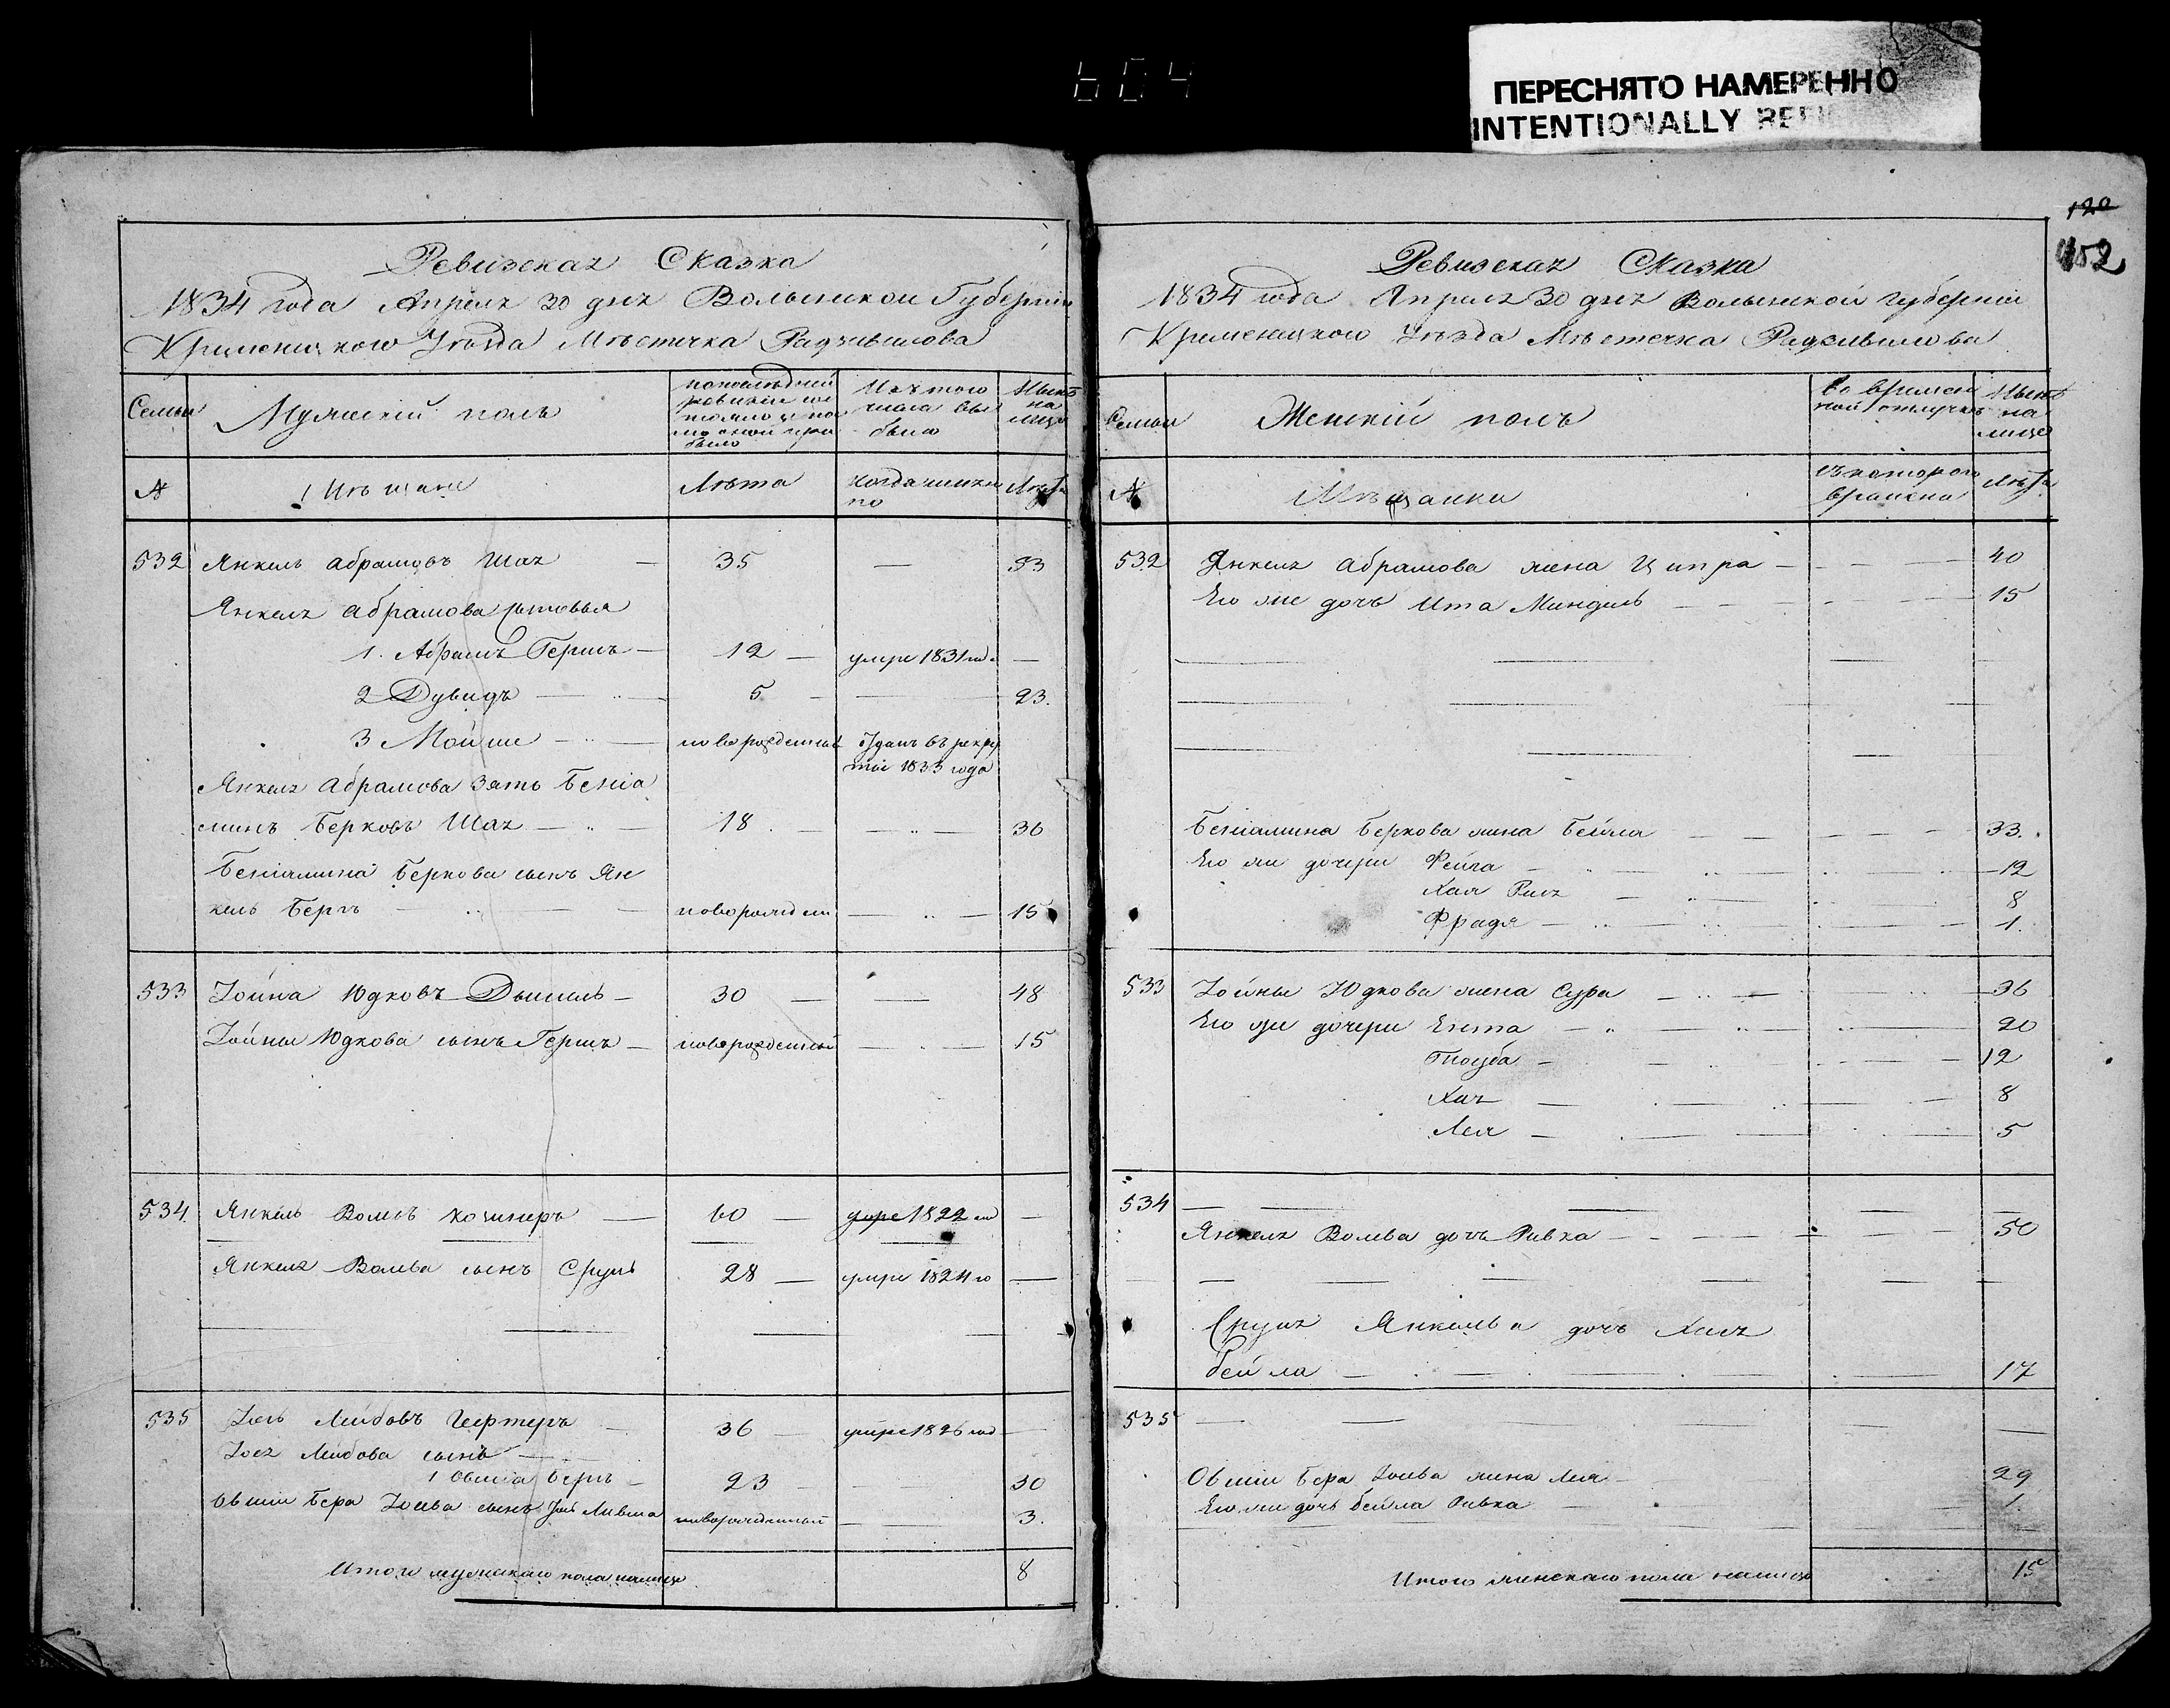 604
ПЕРЕСНЯТО НАМЕРЕННО
INTENTIONALLY
Ревизская Сказка
1834 года Апреля 30 дня Волынской Губернии
Кременецкого Уѣзда Мѣстечка Радзивилова
Семьи
Мужескій полъ
Изъ того числа выбыло
Нынѣ на лицо
№
Мѣщане
Лѣта
когда именно
Лѣта
532 Янкель Абрамовъ Шая — 35 — 53
Янкеля Абрамова сыновья
1. Абрамъ Гершъ — 12 — умре 1831 год. —
2 Дувидъ — 5 — 23.
3 Мойше — новорожденный Зданъ въ рекру
ты 1833 года
Янкеля Абрамова Зять Беніа
минъ Берковъ Шая — 18 — 36
Беніамина Беркова сынъ Ян
кель Беръ — новорожден — 15
533 Іойна Юдковъ Дышель — 30 — 48
Іойны Юдкова сынъ Гершъ — новорожденный — 15
534. Янкель Волевъ — 60 — умре 1822 год —
Янкеля Волева сынъ Сруль 28 — умре 1824 го —
535 Іось Лейбовъ 36 — умре 1826 год —
Іося Лейбова сынъ —
1 Овшіа Беръ — 23 — 30
Овшіи Бера Іосева сынъ новорожденный — 3.
Итого мужскаго пола налицо 8
120
152
Ревизская Сказка
1834 года Апреля 30 дня Волынской губерніи
Кременецкого Уѣзда Мѣстечка Радзивилова
Семьи
Женскій полъ
во времен
ной отлучкѣ
Нынѣ
на
лицо
№
Мѣщанки
съ которого
времени
Лѣта
532 Янкеля Абрамова жена Ципра — 40
Его же дочь Ита Миндель — 15
Беніамина Беркова жена Бейла — 33.
Его же дочери Фейга — 12
Хая Рися — 8
Фрадя — 1.
533 Іойны Юдкова жена Сура — 36
Его же дочери Ента — 20
Тоуба — 12
Хая — 8
Лея — 5
534
Янкеля Волева дочь Ривка — 50
Сруля Янкелева дочь Хая
бейла — 17
535
Овшіи Бера Іосева жена Лея — 29
Его же дочь бейла Ривка — 1.
Итого женскаго пола налицо 15